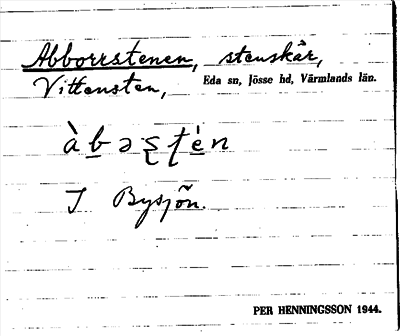 Abborrstenen, stenskär,
Vittensten, Eda sn, Jösse hd, Värmlands län.
I Bysjön.
PER HENNINGSSON 1944.